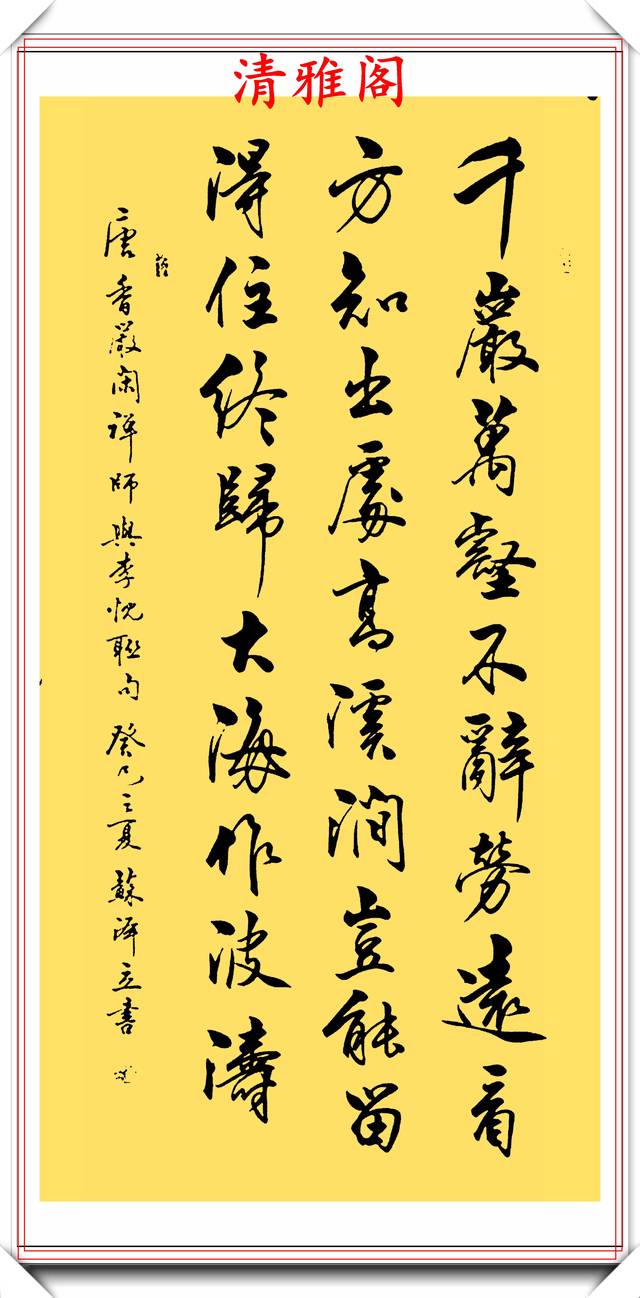 清雅阁
千巖萬壑不辭勞遠看
方知出處高溪澗豈能留
得住終歸大海作波濤
唐香嚴閑禅師與李忱聯句癸巳之夏蘇澤立書